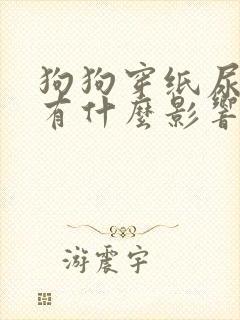 狗狗穿纸尿
有什麼影響
游震宇